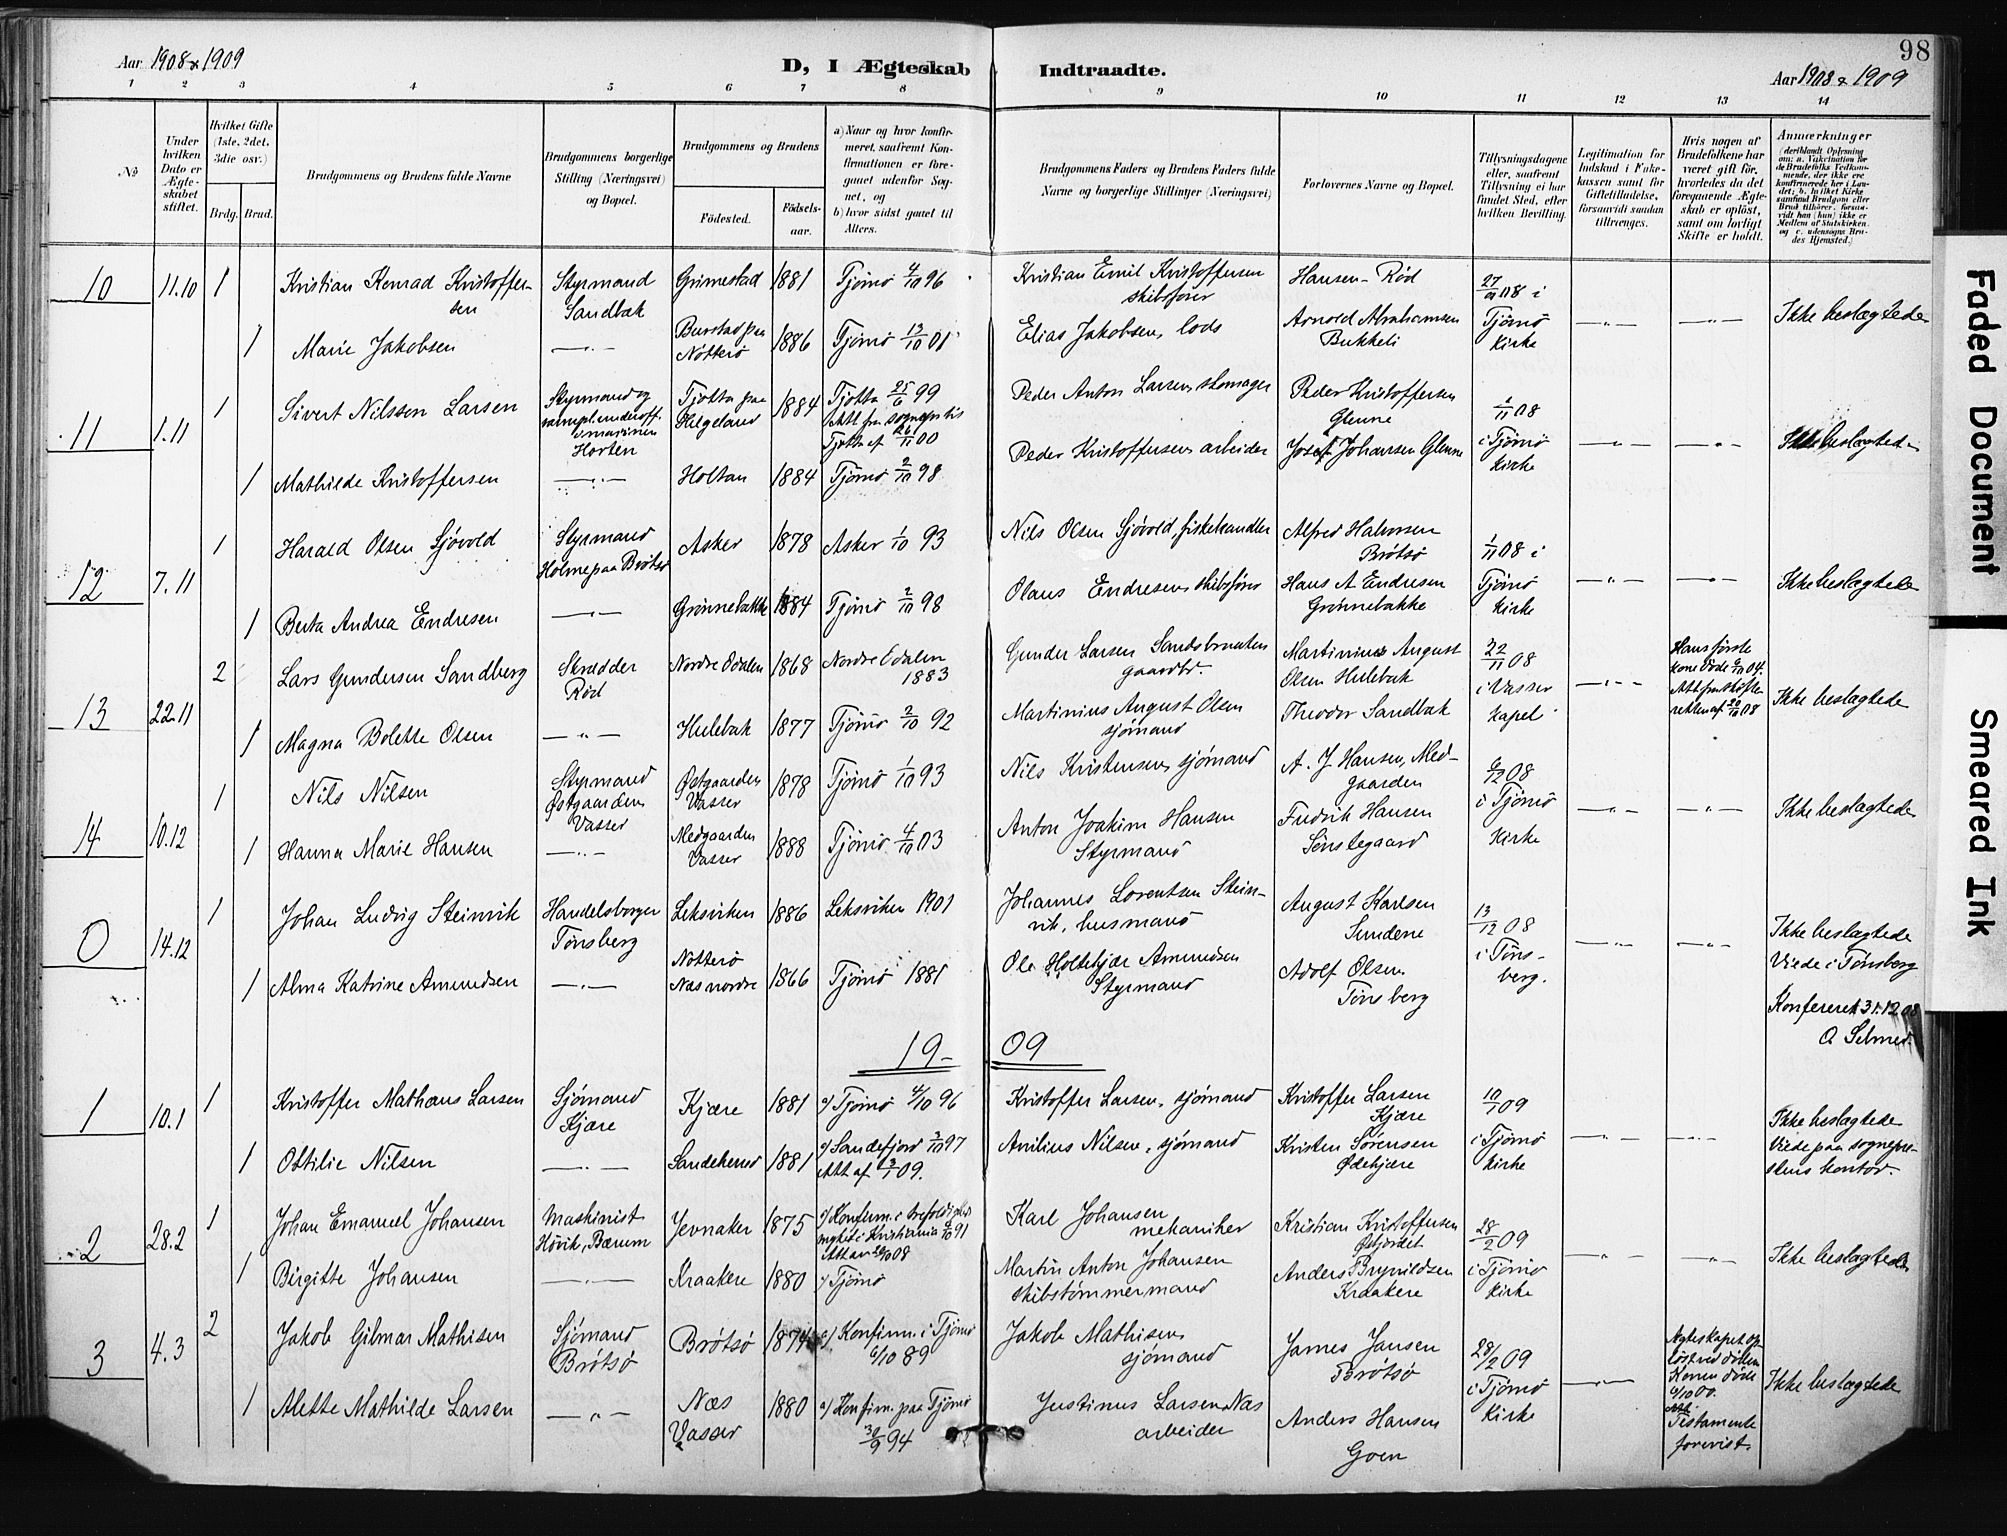 98
Aar 1908 & 1909
D, I Ægteskab Indtraadte.
Aar 1908 & 1909
1 2 3 4 5 6 7 8 9 10 11 12 13 14
No
Under hvilken Dato er Ægteskabet stiftet.
Hvilket Gifte (1ste, 2det, 3die osv.)
Brdg. Brud.
Brudgommens og Brudens fulde Navne
Brudgommens borgerlige Stilling (Næringsvei) og Bopæl.
Brudgommens og Brudens
Fødested. Fødselsaar.
a) Naar og hvor konfirmeret, saafremt Konfirmationen er foregaaet udenfor Sognet, og
b) hvor sidst gaaet til Alters.
Brudgommens Faders og Brudens Faders fulde Navne og borgerlige Stillinger (Næringsvei)
Forlovernes Navne og Bopæl.
Tillysningsdagene eller, saafremt Tillysning ei har fundet Sted, efter hvilken Bevilling.
Legitimation for Indskud i Enkekassen samt for Giftetilladelse, forsaavidt saadan tiltrænges.
Hvis nogen af Brudefolkene har været gift før, hvorledes da det foregaaende Ægteskab er opløst, samt om lovligt Skifte er holdt.
Anmærkninger
10 11.10 1 Kristian Konrad Kristoffersen Styrmand Sandbæk Grimestad 1881 Tjømø 4/10 96 Kristian Emil Kristoffersen skibsfører Hansen - Rød 27/9 08 i Tjømø Kirke Ikke beslægtede
1 Marie Jakobsen Burstad paa Nøtterø 1886 Tjømø 13/10 01 Elias Jakobsen, lods Arnold Abrahamsen Bukkeli
11 1.11 1 Sivert Nilssen Larsen Styrmand og Horten Tjøtta paa Helgeland 1884 Tjøtta 25/6 99 Att fra sognepr. til Tjøtta af 26/11 00 Peder Anton Larsen skomager Peder Kristoffersen Glenne 1/11 08 i Tjømø Kirke Ikke beslægtede
1 Mathilde Kristoffersen Holtan 1884 Tjømø 2/10 98 Peder Kristoffersen arbeider Josef Johansen Glenne
12 7.11 1 Harald Olsen Sjøvold Styrmand Holme paa Brøtsø Asker 1878 Asker 1/10 93 Nils Olsen Sjøvold, fiskehandler Alfred Halvorsen Brøtsø 1/11 08 i Tjømø Kirke Ikke beslægtede
1 Berta Andrea Endresen Grønnebakke 1884 Tjømø 2/10 98 Olaus Endresen skibsfører Hans A Endresen Grønnebakke
13 22.11 2 Lars Gundersen Sandberg Skrædder Rød Nordre Odalen 1868 Nordre Odalen 1883 Gunder Larsen gaardbr. Martinius August Olsen Hulebak 22/11 08 i Vasser Kapel Hans første kone døde 04. Att fra skifteretten af 08 Ikke beslægtede
1 Magna Bolette Olsen Hulebak 1877 Tjømø 2/10 92 Martinius August Olsen sjømand Theodor Sandbæk
14 10.12 1 Nils Nilsen Styrmand Østgaarden Vasser Østgaarden Vasser 1878 Tjømø 1/10 93 Nils Kristensen, sjømand A. J Hansen, Medgaarden 6/12 08 i Tjømø Kirke Ikke beslægtede
1 Hanna Marie Hansen Medgaarden Vasser 1888 Tjømø 4/10 03 Anton Joakim Hansen Styrmand Fredrik Hansen Sønstegaard
0 14.12 1 Johan Ludvig Steinvik Handelsborger Tønsberg Leksviken 1886 Leksviken 1901 Johannes Lorentsen Steinvik, husmand August Karlsen Sundene 13/12 08 i Tønsberg. Ikke beslægtede Viede i Tønsberg
1 Alma Katrine Amundsen Nøtterø Næs nordre 1866 Tjømø 1881 Ole Holtekjær Amundsen Styrmand Adolf Olsen Tønsberg
Konfereret 31.12.08
O Selmer.
19-09
1 10.1 1 Kristoffer Mathæus Larsen Sjømand Kjære Kjære 1881 a) Tjømø 4/10 96 Kristoffer Larsen, sjømand Kristoffer Larsen Kjære 10/1 09 i Tjømø Kirke Ikke beslægtede Viede paa sogneprestens kontor.
1 Ottilie Nilsen Sandeherred 1881 a) Sandefjord 3/10 97 Att af 3/1 09. Anilius Nilsen, sjømand Kristen Sørensen Ødekjære
2 28.2 1 Johan Emanuel Johansen Maskinist Høvik, Bærum Jevnaker 1875 a) Konfirm. i trefoldighed mgkit i Kristiania 4/10 91 Att av 08 Karl Johansen mekaniker Kristian Kristoffersen 28/2 09 i Tjømø Kirke Ikke beslægtede
1 Birgitte Johansen Kraakere 1880 a) Tjømø Martin Anton Johansen skibstømmermand Anders Brynildsen Kraakere
3 4.3 2 Jakob Gilmar Mathisen Sjømand Brøtsø Brøtsø 1874 a) Konfirm. i Tjømø 6/10 89 Jakob Mathisen sjømand James Jansen Brøtsø 28/2 09 i Tjømø Kirke Ægteskapet opløst ved døden Konen døde 6/10 00. Testamente forevist. Ikke beslægtede
1 Alette Mathilde Larsen Næs Vasser 1880 a) Konfirm. paa Tjømø 30/9 94 Justinus Larsen Næs arbeider Anders Hansen Goen
Faded Document
Smeared Ink